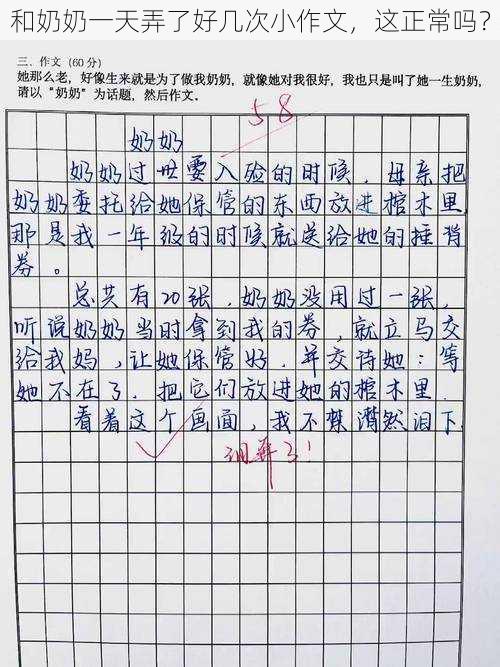 和奶奶一天弄了好几次小作文，这正常吗？
三、作文（60 分）
她那么老，好像生来就是为了做我奶奶，就像她对我很好，我也只是叫了她一生奶奶，
请以“奶奶”为话题，然后作文。
58
奶奶
奶奶过世要入殓的时候，母亲把
奶奶委托给她保管的东西放进棺木里，
那是我一年级的时候就送给她的捶背
券。
总共有20张，奶奶没用过一张，
听说奶奶当时拿到我的券，就立马交
给我妈，让她保管好，并交待她：等
她不在了，把它们放进她的棺木里．
看着这个画面，我不禁潸然泪下．
泪奔了！